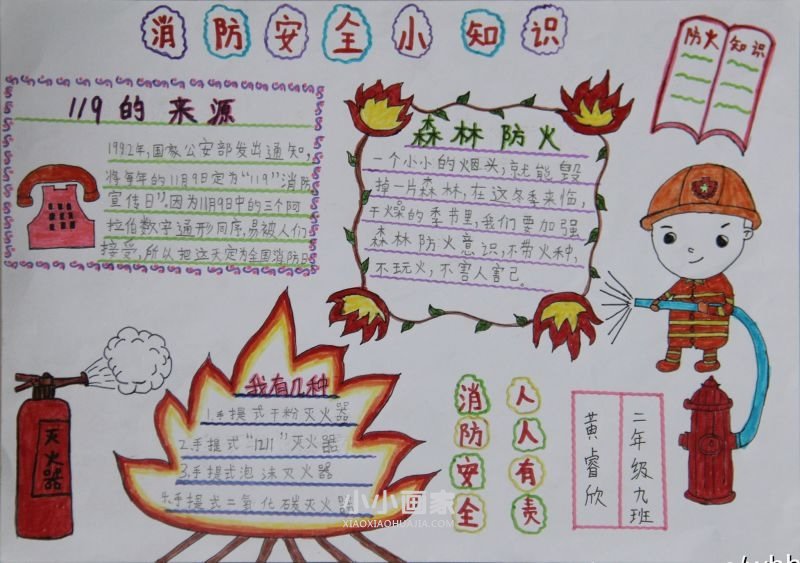 消防安全小知识
119的来源
1992年,国家公安部发出通知,
将每年的11月9日定为“119”消防
宣传日”,因为11月9日中的三个阿
拉伯数字通形同序,易被人们
接受,所以把这天定为全国消防日
森林防火
一个小小的烟头,就能毁
掉一片森林,在这冬季来临,
干燥的季节里,我们要加强
森林防火意识,不带火种,
不玩火,不害人害己。
防火知识
灭火器
我有几种
1.手提式干粉灭火器
2.手提式“1211”灭火器
3.手提式泡沫灭火器
4.手提式二氧化碳灭火器
消防安全
人人有责
二年级九班
黄睿欣
小小画家
XIAOXIAOHUAJIA.COM